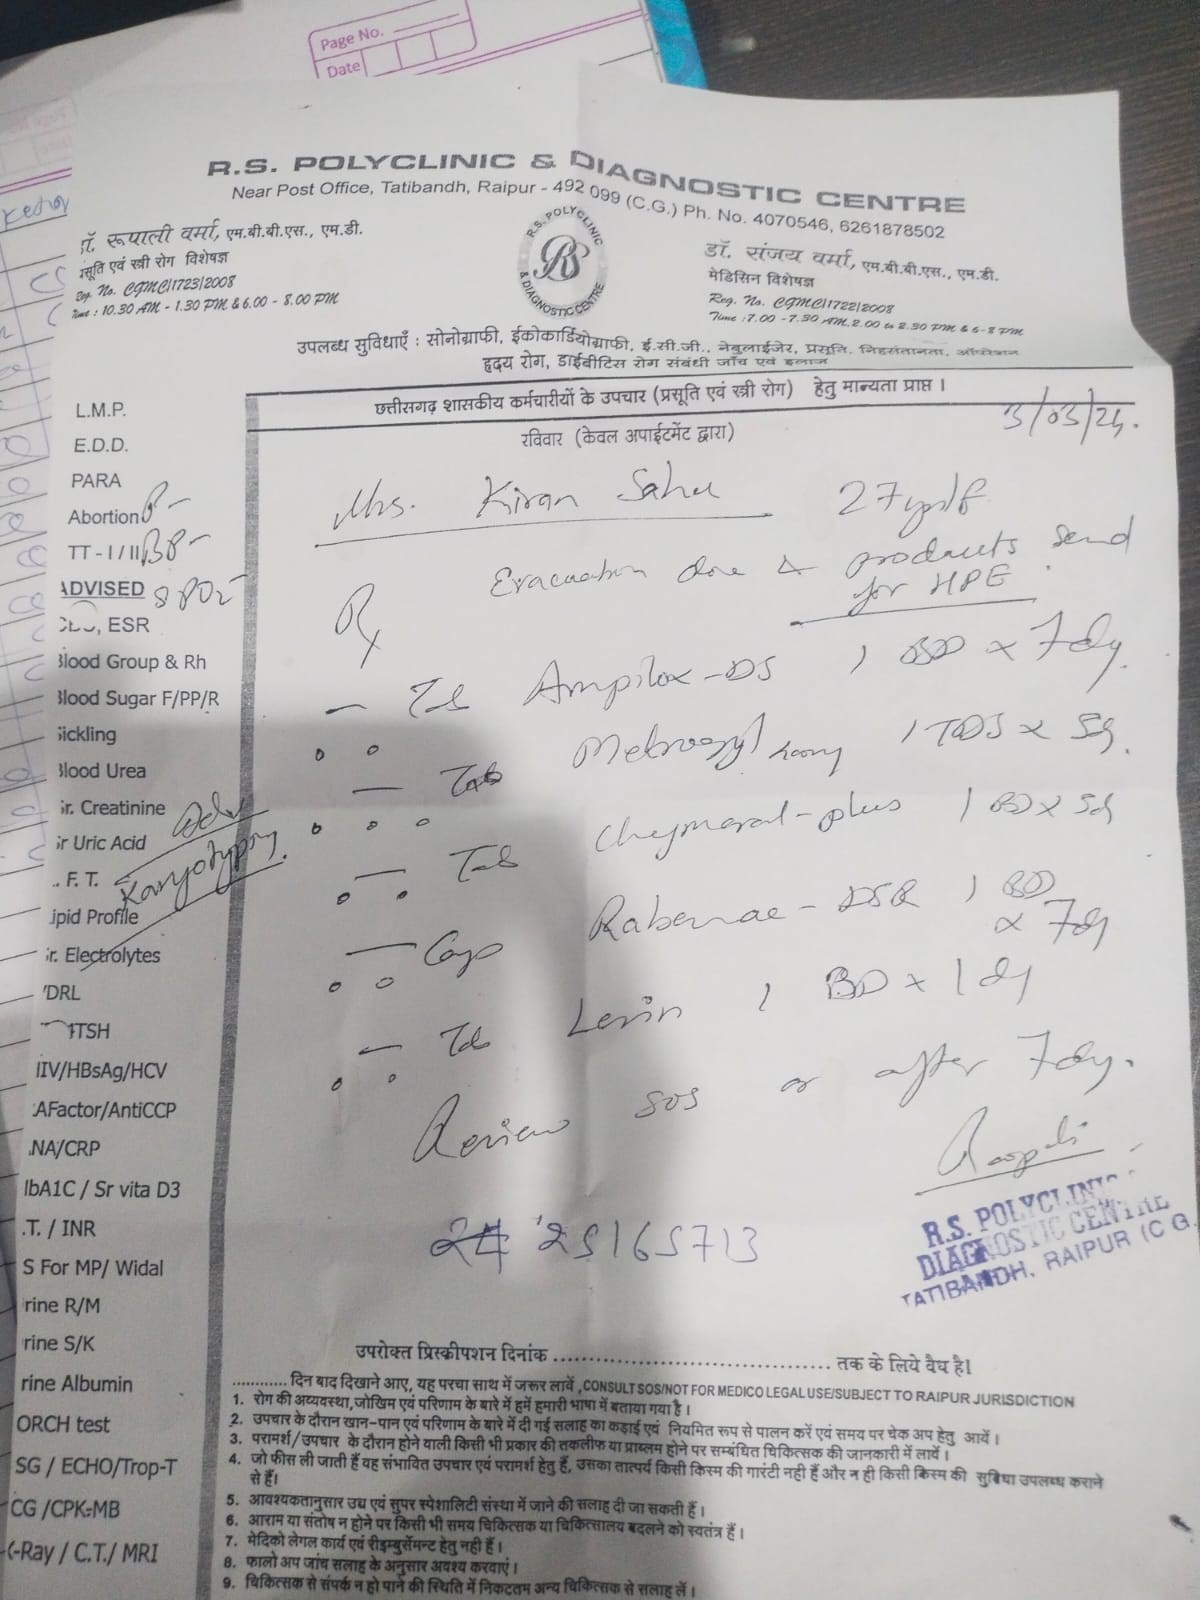 Page No.
Date
R.S. POLYCLINIC & DIAGNOSTIC CENTRE
Near Post Office, Tatibandh, Raipur - 492 099 (C.G.) Ph. No. 4070546, 6261878502
R.S. POLYCLINIC & DIAGNOSTIC CENTRE
RS
डॉ. रूपाली वर्मा, एम.बी.बी.एस., एम.डी.
प्रसूति एवं स्त्री रोग विशेषज्ञ
Reg. No. CGMC/1723/2008
Time : 10.30 AM - 1.30 PM & 6.00 - 8.00 PM
डॉ. संजय वर्मा, एम.बी.बी.एस., एम.डी.
मेडिसिन विशेषज्ञ
Reg. No. CGMC/1722/2008
Time :7.00 - 7.30 AM. 2.00 to 2.30 PM & 6-8 PM
उपलब्ध सुविधाएँ : सोनोग्राफी, ईकोकार्डियोग्राफी, ई.सी.जी., नेबुलाईजेर, प्रसूति, निःसंतानता, ऑपरेशन
हृदय रोग, डाईबीटिस रोग संबंधी जाँच एवं इलाज
छत्तीसगढ़ शासकीय कर्मचारीयों के उपचार (प्रसूति एवं स्त्री रोग) हेतु मान्यता प्राप्त ।
रविवार (केवल अपाईटमेंट द्वारा)
3/03/24.
L.M.P.
E.D.D.
PARA
Abortion P-
TT - I / II BP-
ADVISED SPO2-
CBC, ESR
Blood Group & Rh
Blood Sugar F/PP/R
Sickling
Blood Urea
Sr. Creatinine
Sr Uric Acid
L. F. T.
Lipid Profile
Sr. Electrolytes
VDRL
TSH
HIV/HBsAg/HCV
RAFactor/AntiCCP
ANA/CRP
HbA1C / Sr vita D3
P.T. / INR
PS For MP/ Widal
Urine R/M
Urine S/K
Urine Albumin
TORCH test
USG / ECHO/Trop-T
ECG /CPK-MB
X-Ray / C.T./ MRI
Adv
Karyotyping.
Mrs. Kiran Sahu 27yr/f
Evacuation done & products send
for HPE
Rx
- Tab Ampilox-DS 1 BD x 7dy.
- Tab Metrogyl 400mg 1 TDS x 5d.
- Tab Chymoral-plus 1 BD x 5d
- Cap Rabemac-DSR 1 BD
x 7dy
- Tab Levin 1 BD x 1dy
Review SOS or after 7dy.
Roopali
R.S. POLYCLINIC &
DIAGNOSTIC CENTRE
TATIBANDH, RAIPUR (C.G.
25165713
उपरोक्त प्रिस्क्रीपशन दिनांक ........................................ तक के लिये वैध है।
............ दिन बाद दिखाने आए, यह परचा साथ में जरूर लावें , CONSULT SOS/NOT FOR MEDICO LEGAL USE/SUBJECT TO RAIPUR JURISDICTION
1. रोग की अव्यवस्था,जोखिम एवं परिणाम के बारे में हमें हमारी भाषा में बताया गया है ।
2. उपचार के दौरान खान-पान एवं परिणाम के बारे में दी गई सलाह का कड़ाई एवं नियमित रूप से पालन करें एवं समय पर चेक अप हेतु आयें ।
3. परामर्श/उपचार के दौरान होने वाली किसी भी प्रकार की तकलीफ या प्राब्लम होने पर सम्बंधित चिकित्सक की जानकारी में लावें ।
4. जो फीस ली जाती हैं वह संभावित उपचार एवं परामर्श हेतु हैं, उसका तात्पर्य किसी किस्म की गारंटी नही हैं और न ही किसी किस्म की सुविधा उपलब्ध कराने
से हैं।
5. आवश्यकतानुसार उच्च एवं सुपर स्पेशालिटी संस्था में जाने की सलाह दी जा सकती हैं ।
6. आराम या संतोष न होने पर किसी भी समय चिकित्सक या चिकित्सालय बदलने को स्वतंत्र हैं ।
7. मेदिको लेगल कार्य एवं रीइम्बुर्सेमेन्ट हेतु नही हैं ।
8. फालो अप जांच सलाह के अनुसार अवश्य करवाएं ।
9. चिकित्सक से संपर्क न हो पाने की स्थिति में निकटतम अन्य चिकित्सक से सलाह लें ।